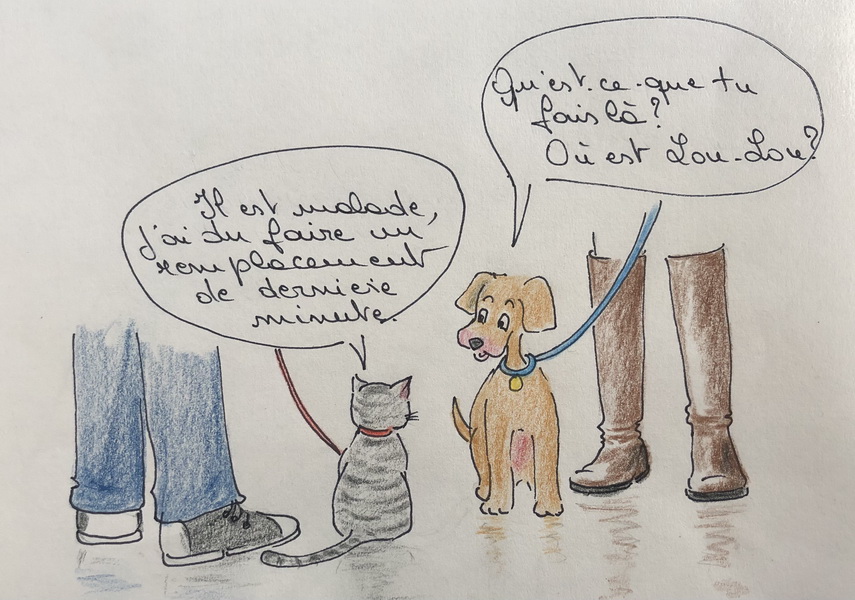 Qu'est-ce-que tu
fais là?
Où est Lou-Lou?
Il est malade,
j'ai du faire un
remplacement
de derniere
minute.